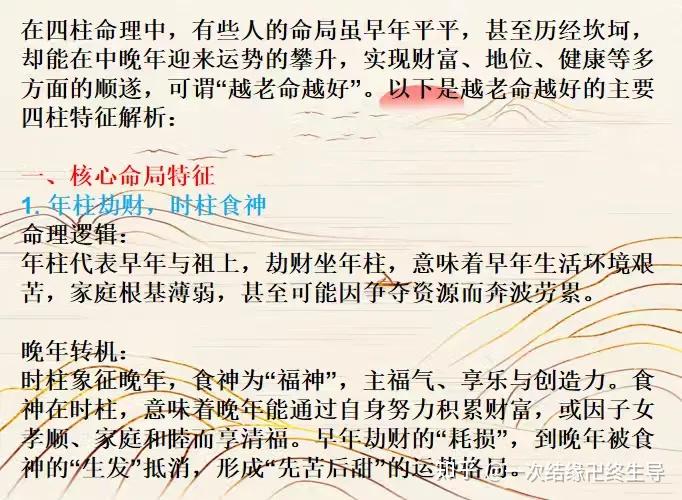 在四柱命理中，有些人的命局虽早年平平，甚至历经坎坷，
却能在中晚年迎来运势的攀升，实现财富、地位、健康等多
方面的顺遂，可谓“越老命越好”。以下是越老命越好的主要
四柱特征解析：
一、核心命局特征
1. 年柱劫财，时柱食神
命理逻辑：
年柱代表早年与祖上，劫财坐年柱，意味着早年生活环境艰
苦，家庭根基薄弱，甚至可能因争夺资源而奔波劳累。
晚年转机：
时柱象征晚年，食神为“福神”，主福气、享乐与创造力。食
神在时柱，意味着晚年能通过自身努力积累财富，或因子女
孝顺、家庭和睦而享清福。早年劫财的“耗损”，到晚年被食
神的“生发”抵消，形成“先苦后甜”的运势格局。
知乎 @一次结缘卍终生导